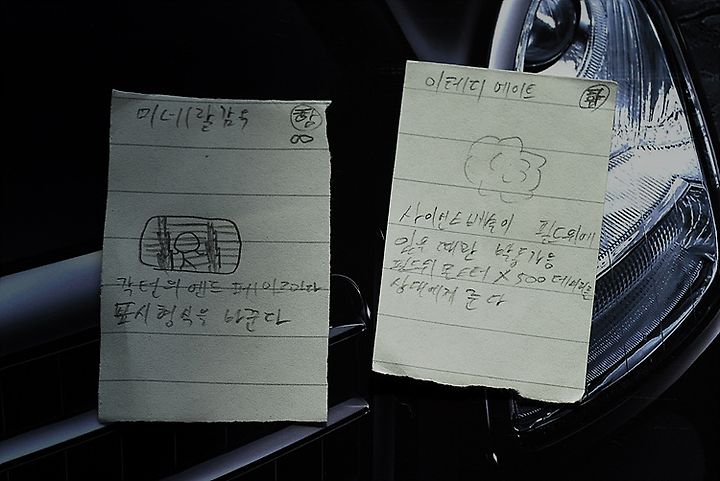 미네랄감옥
함
∞
각 턴의 엔드 페이즈마다
표시형식을 바꾼다
이레디 에이트
사이언스 베슬이 필드위에
있을 때만 발동가능
필드위 몬스터 X 500 데미지를
상대에게 준다